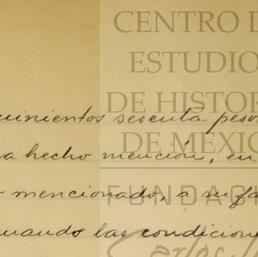 CENTRO D
ESTUDIO
DE HISTOR
DE MÉXIC
FUNDACI
Carlos
uinientos sesenta peso
a hecho mención, en
mencionado, a su fa
uando las condicione